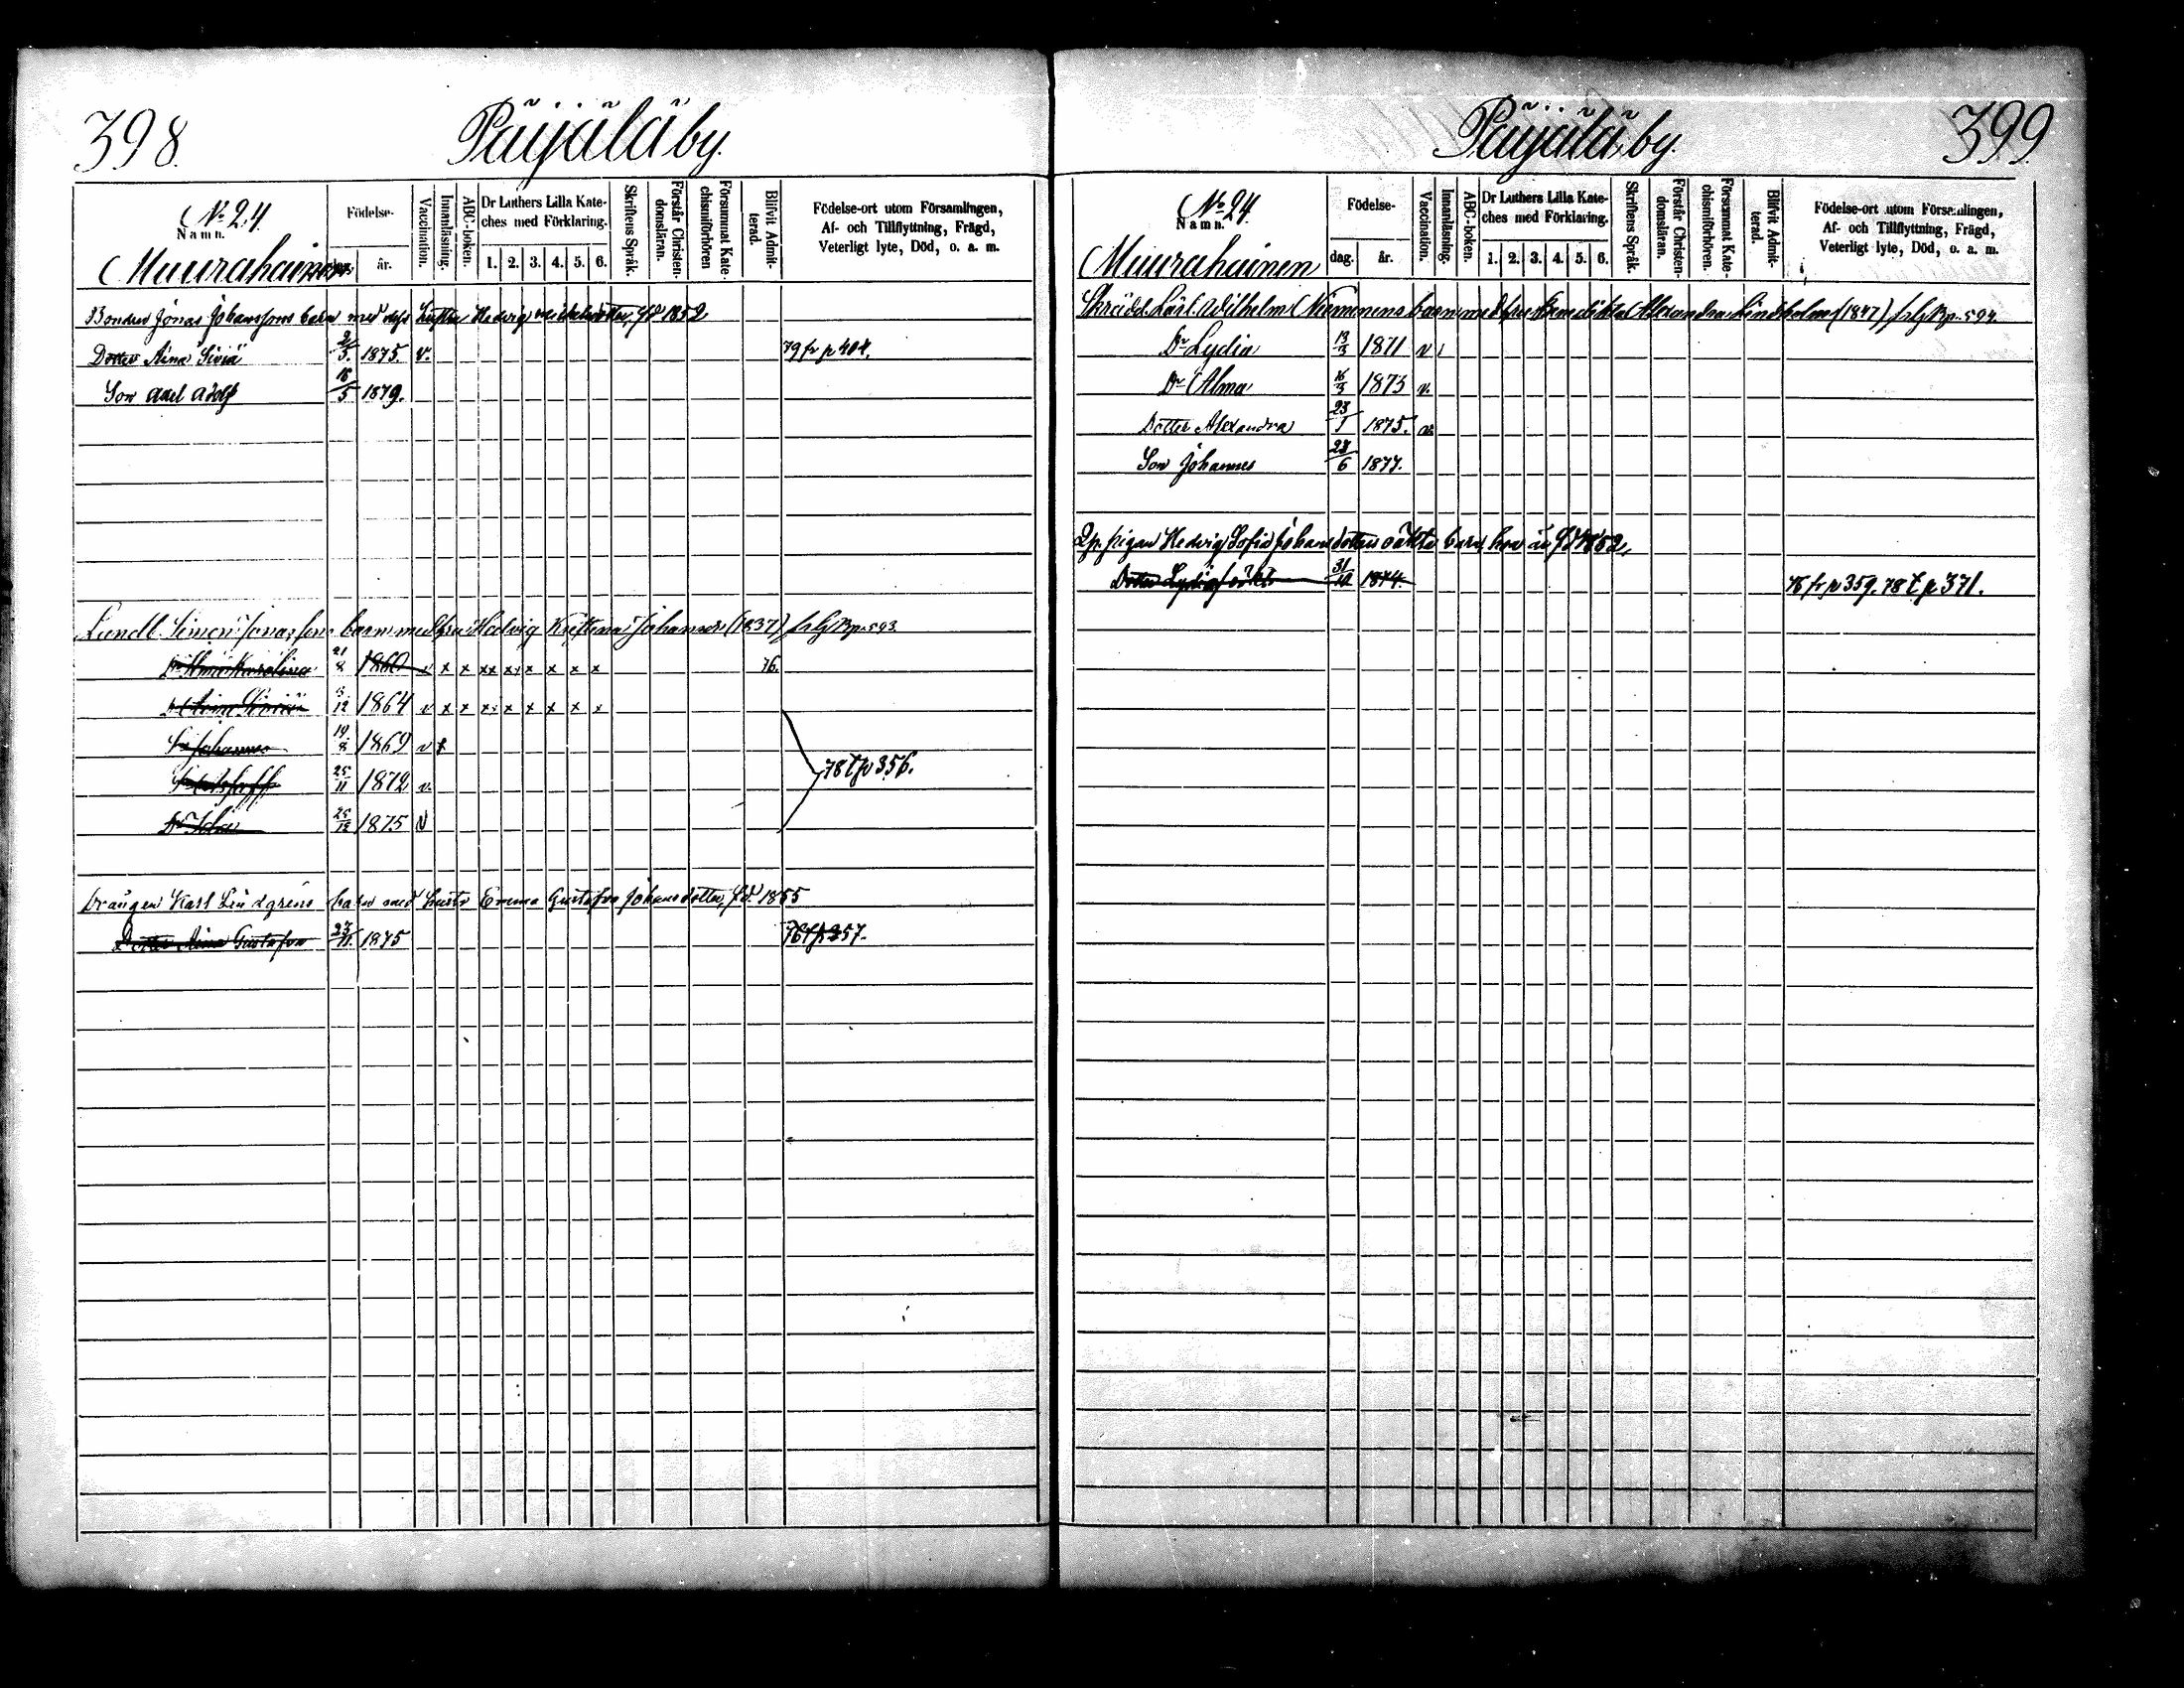 398.
Päijälä by.
No 24
Namn.
Muurahainen
Födelse-
dag.
år.
Vaccination.
Innanläsning.
ABC-boken.
Dr Luthers Lilla Kate-
ches med Förklaring.
1. 2. 3. 4. 5. 6.
Skriftens Språk.
Förstår Christen-
domsläran.
Försummat Kate-
chismiförhören
Blifvit Admit-
terad.
Födelse-ort utom Församlingen,
Af- och Tillflyttning, Frägd,
Veterligt lyte, Död, o. a. m.
Bonden Jonas Johanssons barn med dess hustru Hedvig Michelsdotter, fd 1852
Dotter Aina Sivia 2/3. 1875. v. 79 fr p 404.
Son Axel Adolf 16/5 1879.
Lundb. Simon Jonassons barn med fru Hedvig Kristina Johansdr (1837) Bp. 593.
Karolina 21/8 1860 v x x xx xx x x x x 76.
Aina 3/12 1864 v x x x x x x x x
Sn Johannes 19/8 1869 v x
25/11 1872 v.
78 t p 356.
Dr 25/12 1875 v
Drängen Karl Lindgrens barn med hustr Emma Gustafva Johansdotter, fd. 1855
Dotter Aina Gustafva 23/11 1875 76 t p 357.
Päijälä by.
399
No 24.
Namn.
Muurahainen
Födelse-
dag.
år.
Vaccination.
Innanläsning.
ABC-boken.
Dr Luthers Lilla Kate-
ches med Förklaring.
1. 2. 3. 4. 5. 6.
Skriftens Språk.
Förstår Christen-
domsläran.
Försummat Kate-
chismiförhören.
Blifvit Admit-
terad.
Födelse-ort utom Församlingen,
Af- och Tillflyttning, Frägd,
Veterligt lyte, Död, o. a. m.
Skrädd. Karl Wilhelm Nieminens barn med fru Benedikta Alexandra Lindholm (1847) Bp. 594.
Dr Lydia 13/3 1871 v
Dr Alma 16/3 1873 v.
Dotter Alexandra 23/1 1875. v.
Son Johannes 23/6 1877.
Pigan Hedvig Sofia Johansdotters oäkta barn, hon är fd 1852,
Dotter Lydia oäkta 31/10 1874. 76 fr p 359. 78 t p 371.